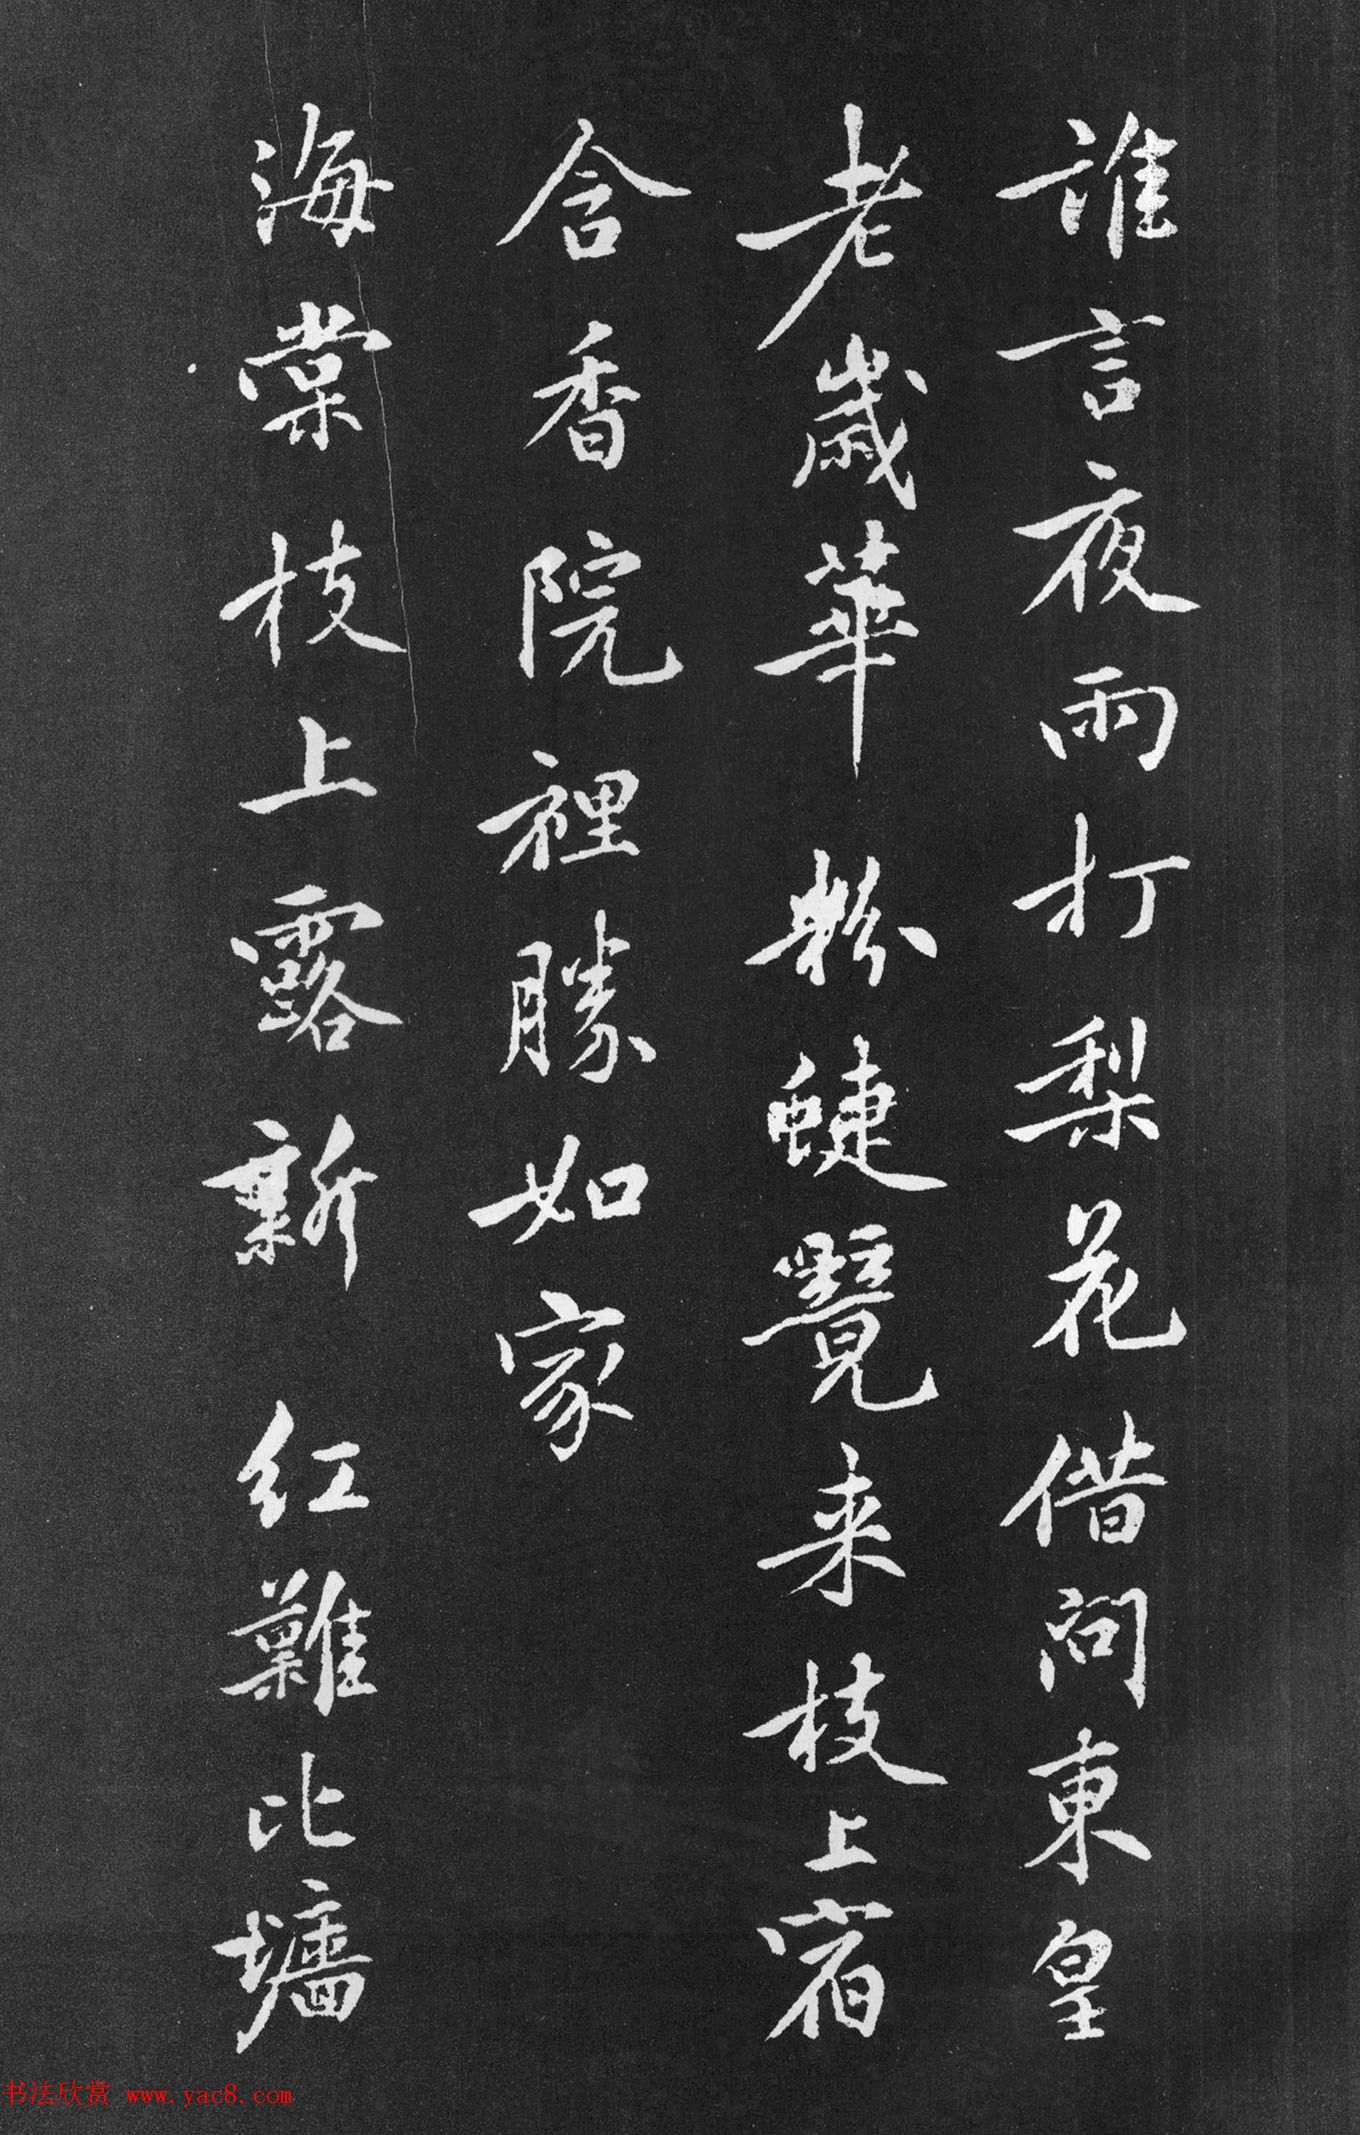 誰言夜雨打梨花借問東皇
老歲華粉蜨覺來枝上宿
含香院裡勝如家
海棠枝上露新紅難比墻
书法欣赏 www.yac8.com